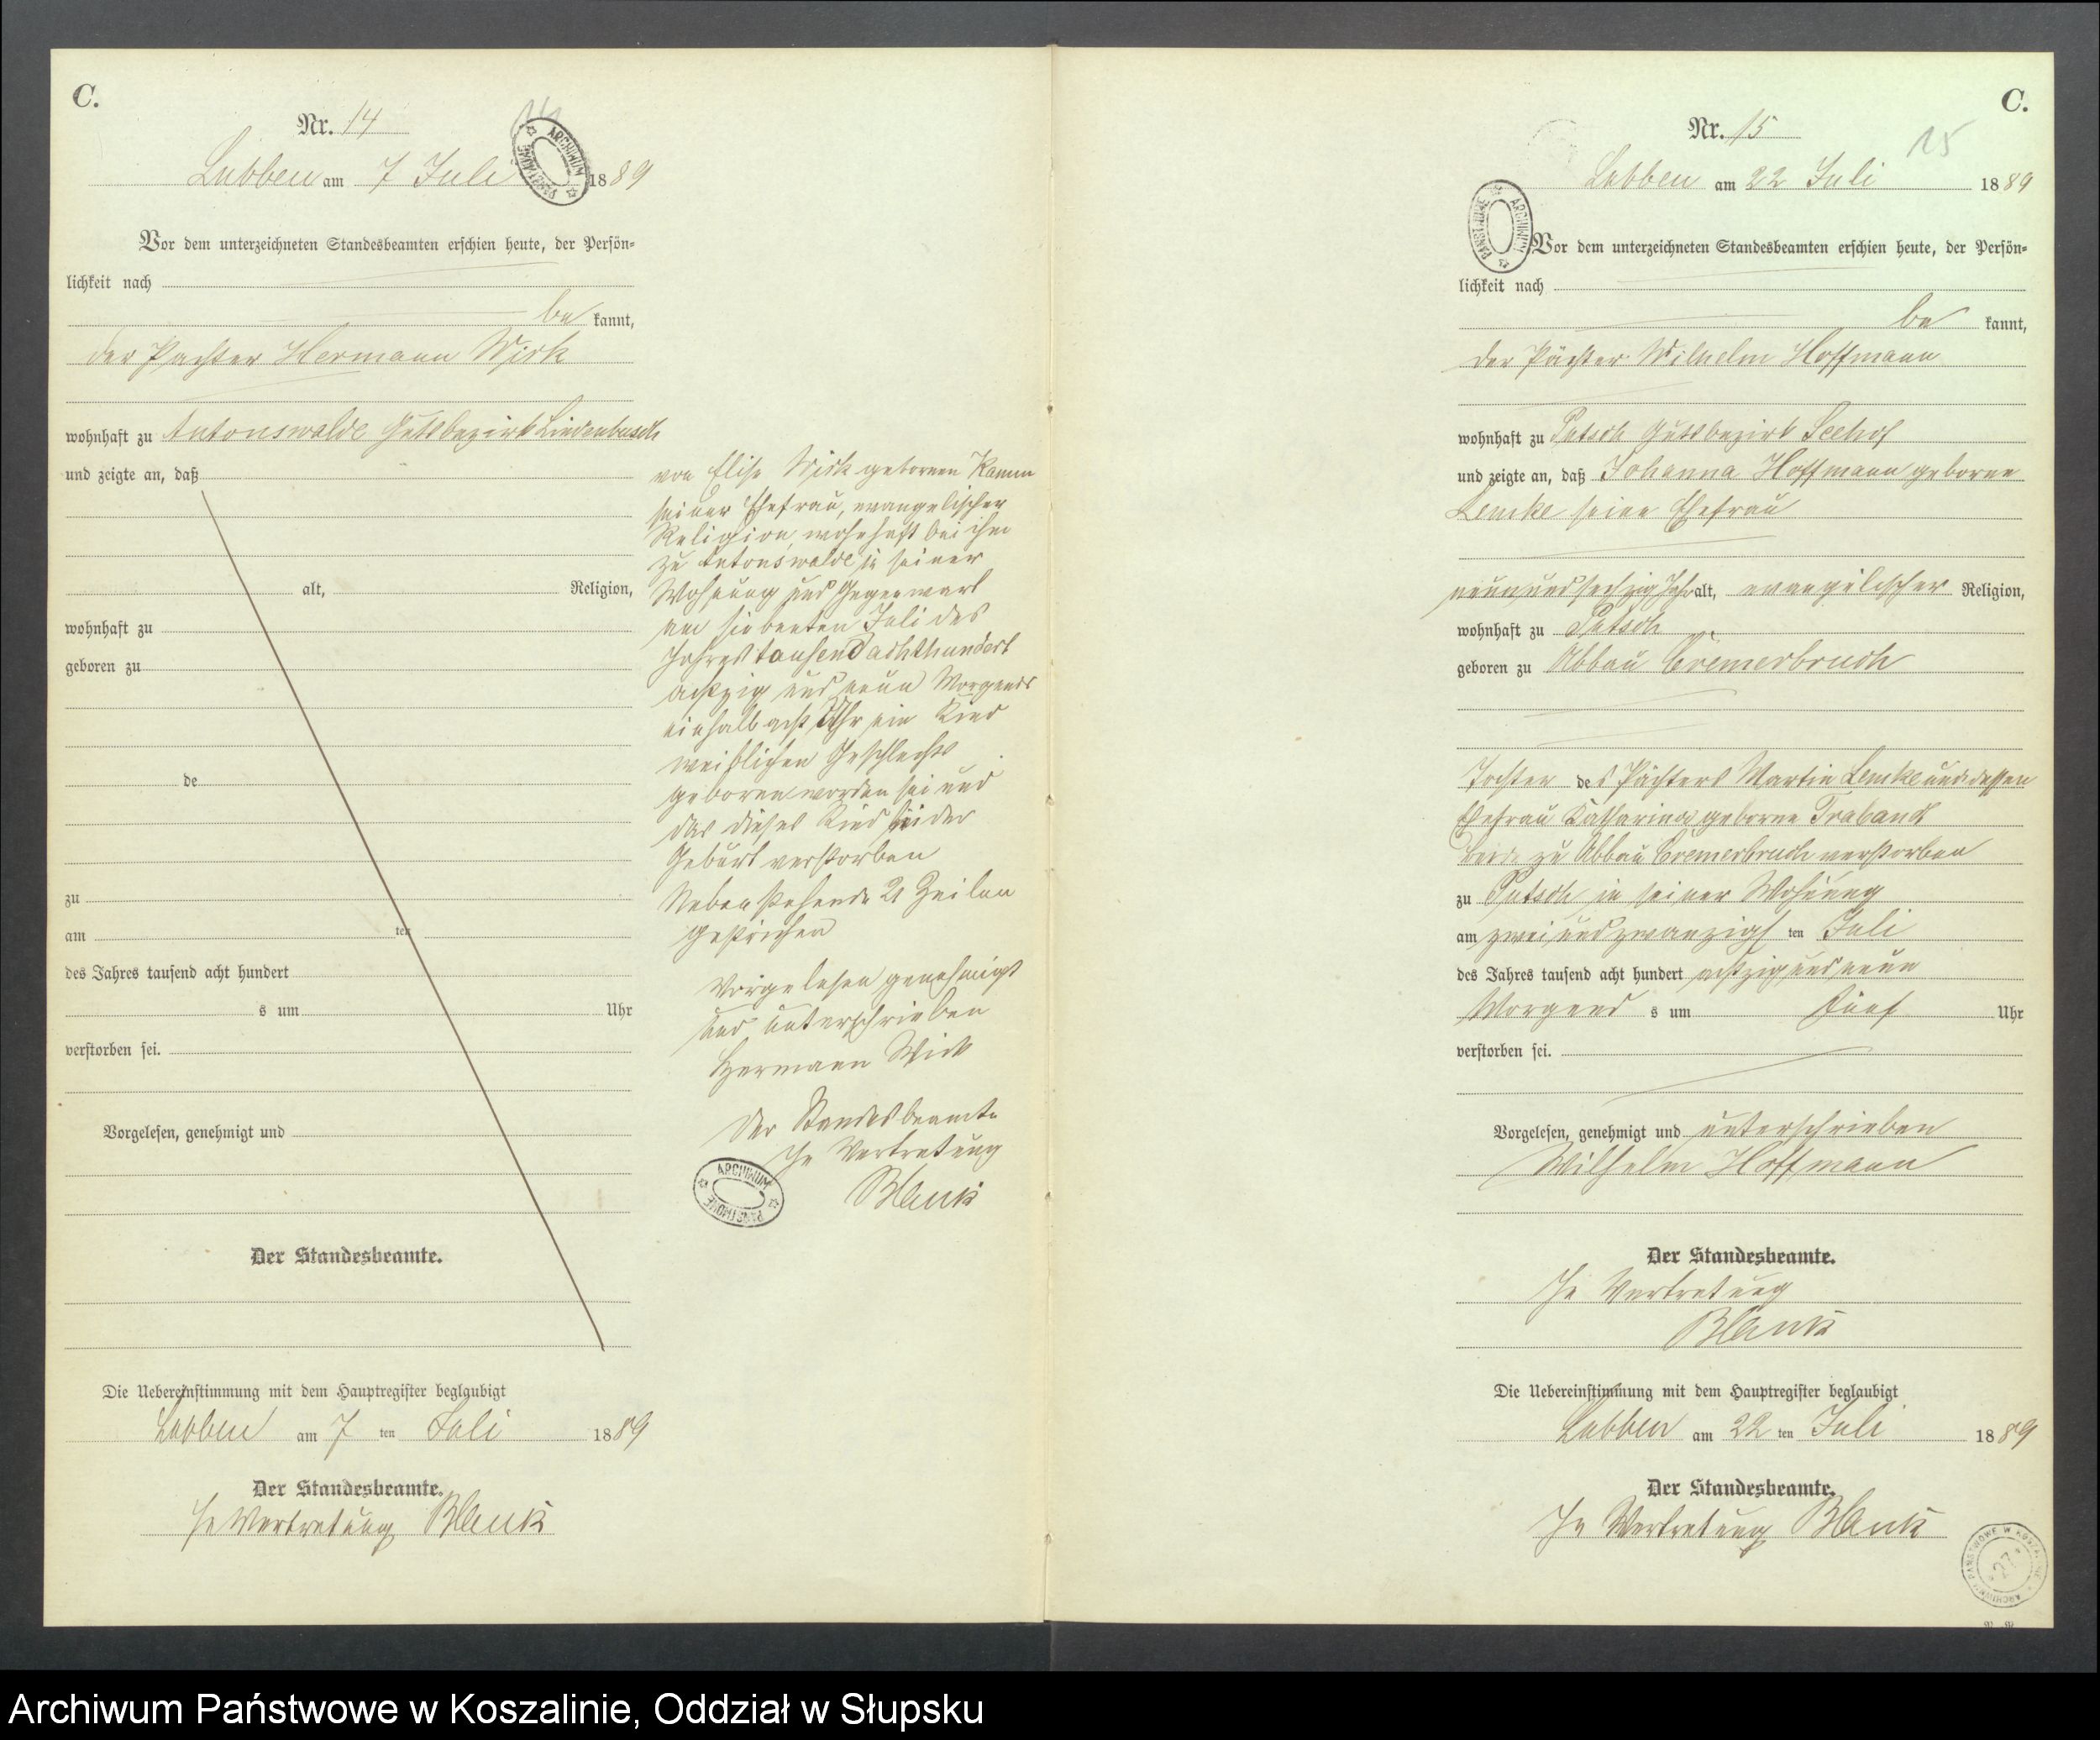 C.
Nr. 14
Lubben am 7 Juli 1889
Vor dem unterzeichneten Standesbeamten erschien heute, der Persön-
lichkeit nach
be kannt,
der Pächter Hermann Wick
wohnhaft zu Antonswalde Gutsbezirk Lindenbusch
und zeigte an, daß
alt, Religion,
wohnhaft zu
geboren zu
de
zu
am ten
des Jahres tausend acht hundert
s um Uhr
verstorben sei.
Vorgelesen, genehmigt und
Der Standesbeamte.
Die Uebereinstimmung mit dem Hauptregister beglaubigt
Lubben am 7 ten Juli 1889
Der Standesbeamte.
In Vertretung Blank
von Elise Wick geborenen Ramm
seiner Ehefrau, evangelischer
Religion, wohnhaft bei ihm
zu Antonswalde in seiner
Wohnung und Gegenwart
am siebenten Juli des
Jahres tausend achthundert
achtzig und neun Morgends
einhalb acht Uhr ein Kind
weiblichen Geschlechts
geboren worden sei und
das dieses Kind bei der
Geburt verstorben
Nebenstehende 21 Zeilen
gestrichen
Vorgelesen genehmigt
und unterschrieben
Hermann Wick
Der Standesbeamte
In Vertretung
Blank
ARCHIWUM PAŃSTWOWE
C.
Nr. 15
15
Lubben am 22 Juli 1889
Vor dem unterzeichneten Standesbeamten erschien heute, der Persön-
lichkeit nach
be kannt,
der Pächter Wilhelm Hoffmann
wohnhaft zu Putsch Gutsbezirk Seehof
und zeigte an, daß Johanna Hoffmann geborne
Lemke seine Ehefrau
neun und sechzig Jahr alt, evangelischer Religion,
wohnhaft zu Putsch
geboren zu Abbau Cremerbruch
Tochter des Pächters Martin Lemke und dessen
Ehefrau Katharina geborne Traband
beide zu Abbau Cremerbruch verstorben
zu Putsch in seiner Wohnung
am zwei und zwanzigs ten Juli
des Jahres tausend acht hundert achtzig und neun
Morgend s um fünf Uhr
verstorben sei.
Vorgelesen, genehmigt und unterschrieben
Wilhelm Hoffmann
Der Standesbeamte.
In Vertretung
Blank
Die Uebereinstimmung mit dem Hauptregister beglaubigt
Lubben am 22 ten Juli 1889
Der Standesbeamte.
In Vertretung Blank
Archiwum Państwowe w Koszalinie, Oddział w Słupsku